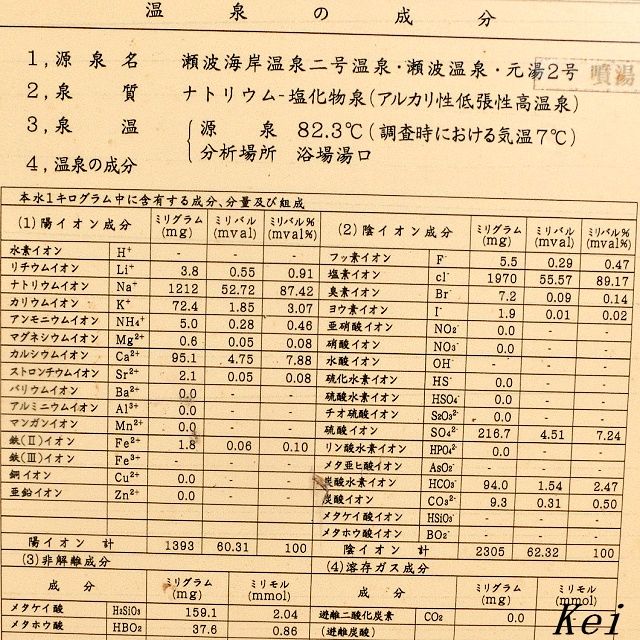 温泉の成分
1, 源泉名 瀬波海岸温泉二号温泉・瀬波温泉・元湯2号 噴湯
2, 泉質 ナトリウム-塩化物泉(アルカリ性低張性高温泉)
3, 泉温 源泉 82.3℃(調査時における気温7℃)
分析場所 浴場湯口
4, 温泉の成分
本水1キログラム中に含有する成分、分量及び組成
(1) 陽イオン成分 ミリグラム(mg) ミリバル(mval) ミリバル%(mval%)
水素イオン H⁺ - - -
リチウムイオン Li⁺ 3.8 0.55 0.91
ナトリウムイオン Na⁺ 1212 52.72 87.42
カリウムイオン K⁺ 72.4 1.85 3.07
アンモニウムイオン NH4⁺ 5.0 0.28 0.46
マグネシウムイオン Mg²⁺ 0.6 0.05 0.08
カルシウムイオン Ca²⁺ 95.1 4.75 7.88
ストロンチウムイオン Sr²⁺ 2.1 0.05 0.08
バリウムイオン Ba²⁺ 0.0 - -
アルミニウムイオン Al³⁺ 0.0 - -
マンガンイオン Mn²⁺ 0.0 - -
鉄(II)イオン Fe²⁺ 1.8 0.06 0.10
鉄(III)イオン Fe³⁺ - - -
銅イオン Cu²⁺ 0.0 - -
亜鉛イオン Zn²⁺ 0.0 - -
陽イオン 計 1393 60.31 100
(2) 陰イオン成分 ミリグラム(mg) ミリバル(mval) ミリバル%(mval%)
フッ素イオン F⁻ 5.5 0.29 0.47
塩素イオン cl⁻ 1970 55.57 89.17
臭素イオン Br⁻ 7.2 0.09 0.14
ヨウ素イオン I⁻ 1.9 0.01 0.02
亜硝酸イオン NO2⁻ 0.0 - -
硝酸イオン NO3⁻ 0.0 - -
水酸イオン OH⁻ - - -
硫化水素イオン HS⁻ 0.0 - -
硫酸水素イオン HSO4⁻ 0.0 - -
チオ硫酸イオン S2O3²⁻ 0.0 - -
硫酸イオン SO4²⁻ 216.7 4.51 7.24
リン酸水素イオン HPO4²⁻ 0.0 - -
メタ亜ヒ酸イオン AsO2⁻ - - -
炭酸水素イオン HCO3⁻ 94.0 1.54 2.47
炭酸イオン CO3²⁻ 9.3 0.31 0.50
メタケイ酸イオン HSiO3⁻ - - -
メタホウ酸イオン BO2⁻ - - -
陰イオン 計 2305 62.32 100
(3) 非解離成分
成分 ミリグラム(mg) ミリモル(mmol)
メタケイ酸 H2SiO3 159.1 2.04
メタホウ酸 HBO2 37.6 0.86
(4) 溶存ガス成分
成分 ミリグラム(mg) ミリモル(mmol)
遊離二酸化炭素 CO2 0.0
(遊離炭酸)
Kei